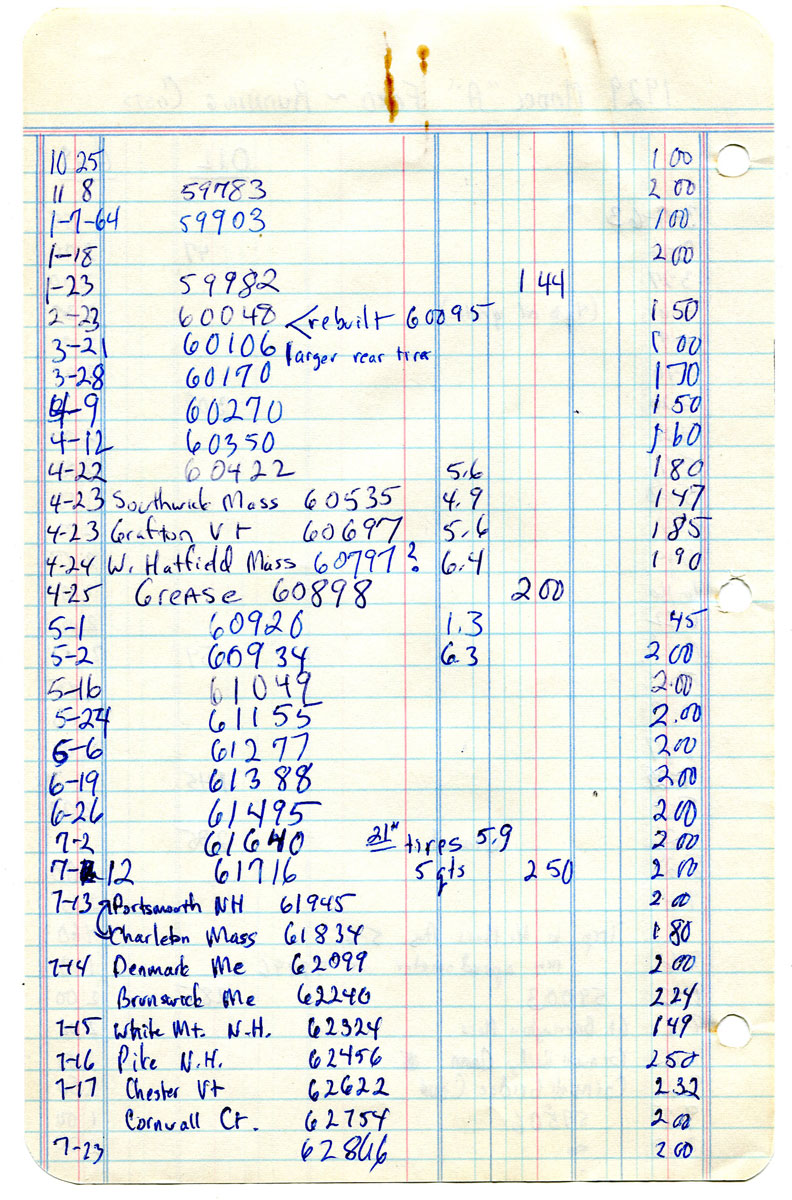 10 25 1 00
11 8 59783 2 00
1-7-64 59903 1 00
1-18 2 00
1-23 59982 1 44
2-23 60048 <rebuilt 60095 1 50
3-21 60106 larger rear tires 1 00
3-28 60170 1 70
4-9 60270 1 50
4-12 60350 1 60
4-22 60422 5.6 1 80
4-23 Southwick Mass 60535 4.9 1 47
4-23 Grafton Vt 60697 5.6 1 85
4-24 W. Hatfield Mass 60797? 6.4 1 90
4-25 Grease 60898 2 00
5-1 60920 1.3 45
5-2 60934 6.3 2 00
5-16 61049 2.00
5-24 61155 2.00
6-6 61277 2 00
6-19 61388 2 00
6-26 61495 2 00
7-2 61640 21" tires 5.9 2 00
7-12 61716 5 qts 2 50 2 00
7-13 Portsmouth NH 61945 2 00
Charleton Mass 61834 1 80
7-14 Denmark Me 62099 2 00
Brunswick Me 62240 2 24
7-15 White Mt. N.H. 62324 1 49
7-16 Pike N.H. 62456 2 50
7-17 Chester Vt 62622 2 32
Cornwall Ct. 62754 2 00
7-23 62846 2 00